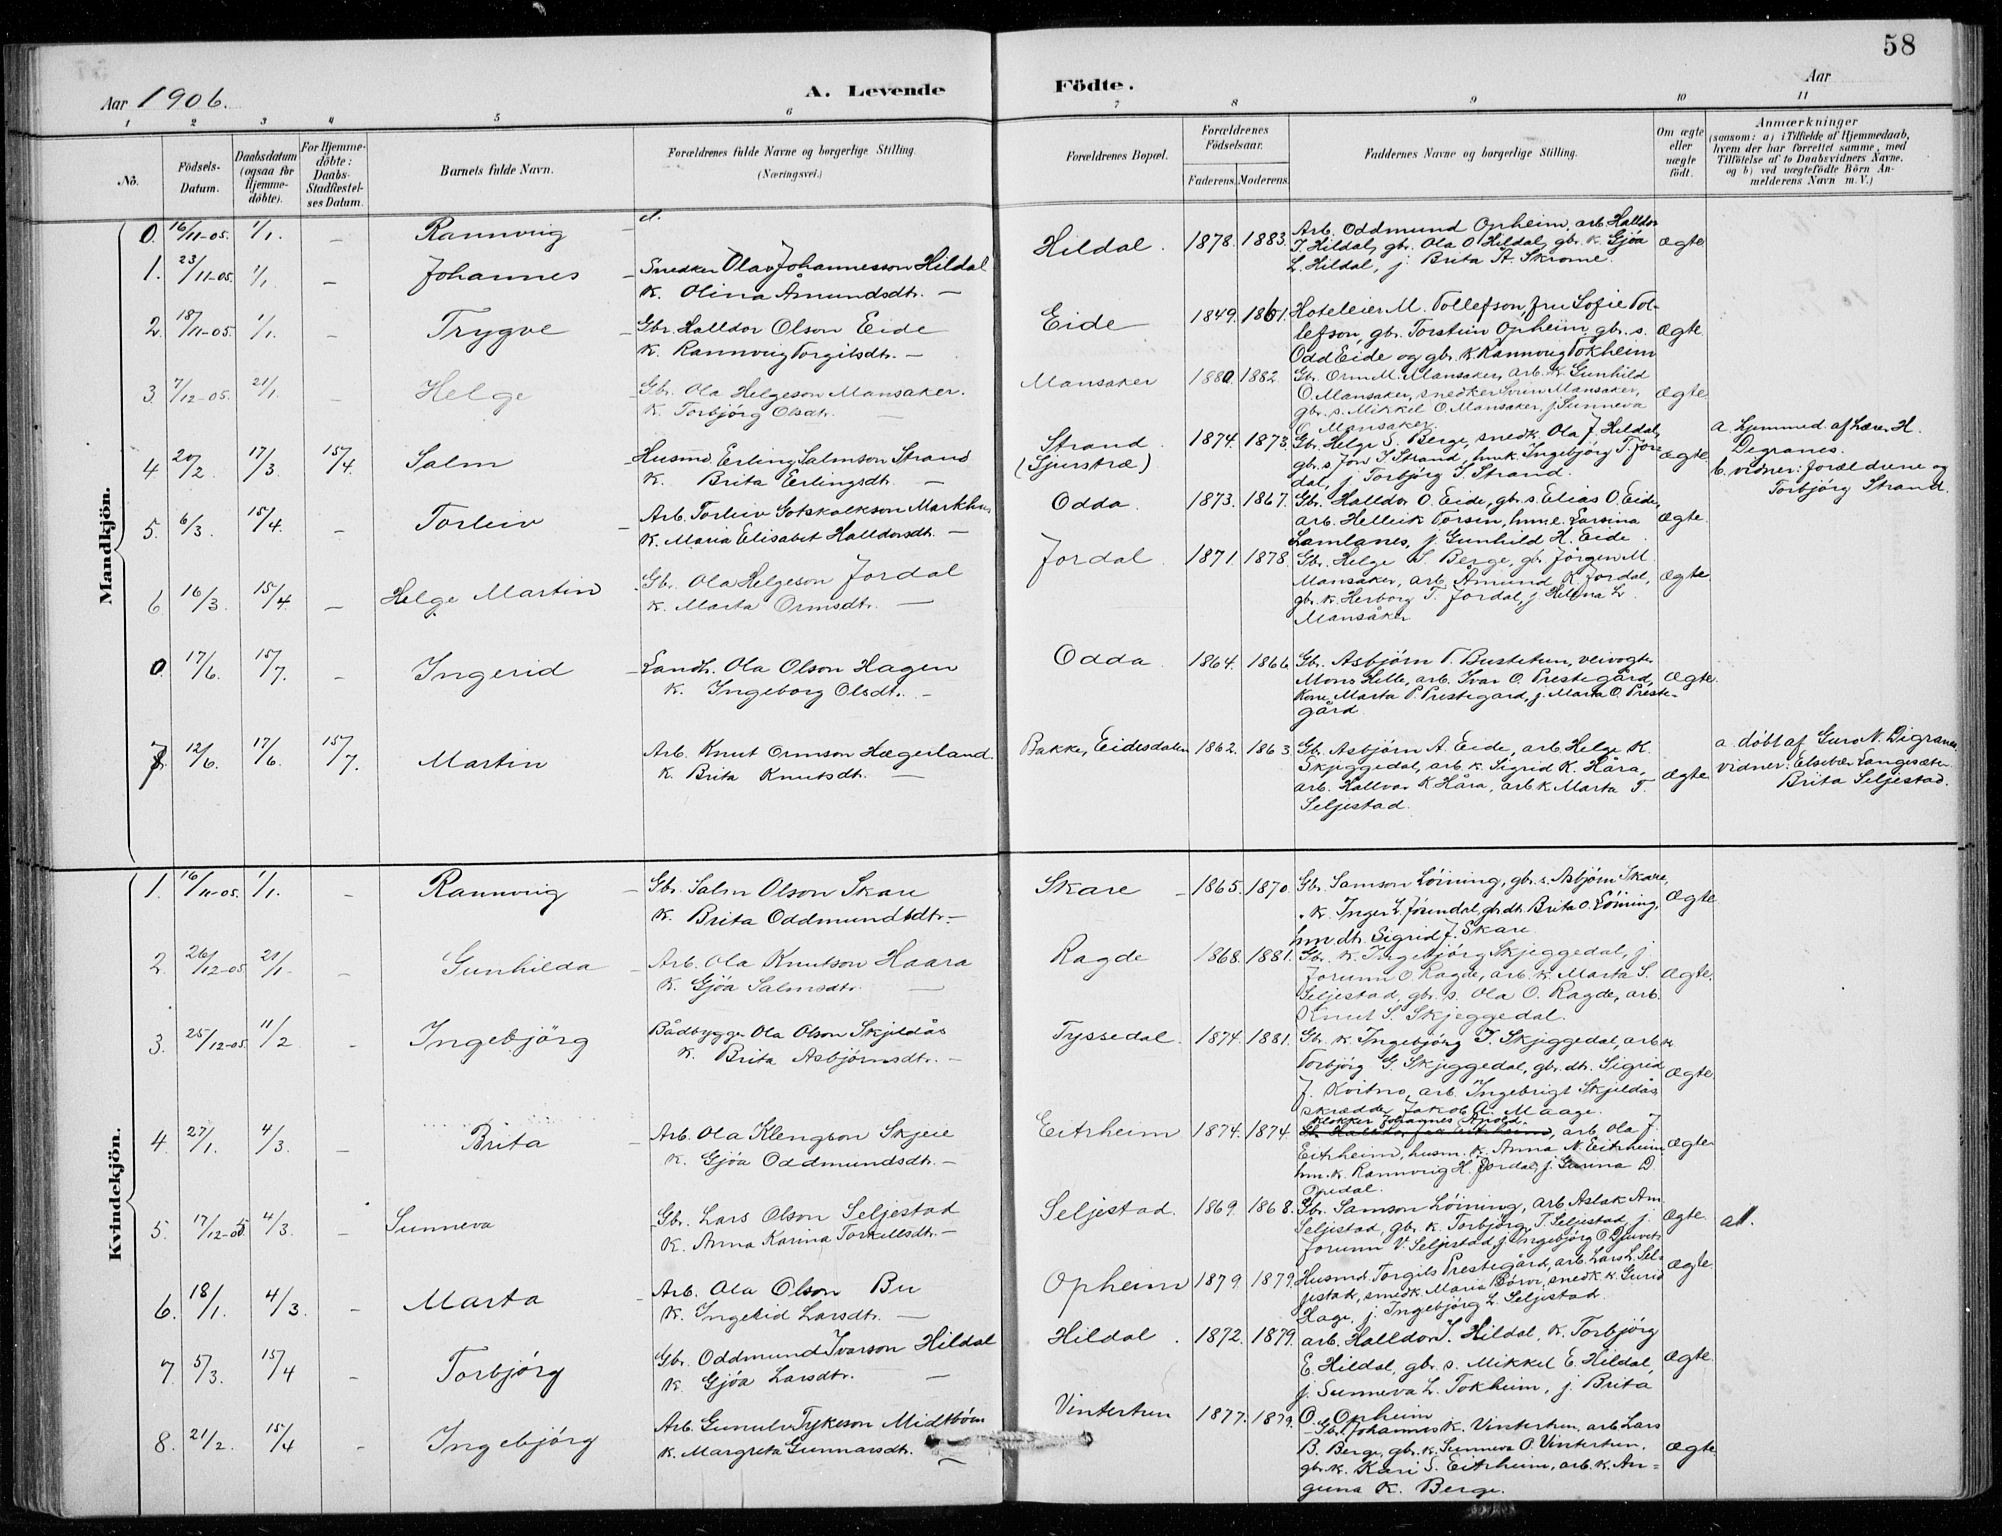 58
Aar 1906.
A. Levende
Födte.
Aar
1 2 3 4 5 6 7 8 9 10 11
No.
Födsels-
Datum.
Daabsdatum
(ogsaa for
Hjemme-
døbte).
For Hjemme-
döbte:
Daabs-
Stadfæstel-
ses Datum.
Barnets fulde Navn.
Forældrenes fulde Navne og borgerlige Stilling.
(Næringsvei.)
Forældrenes Bopæl.
Forældrenes
Födselsaar.
Faderens. Moderens.
Faddernes Navne og borgerlige Stilling.
Om ægte
eller
uægte
födt.
Anmærkninger
(saasom: a) i Tilfælde af Hjemmedaab,
hvem der har forrettet samme, med
Tilföielse af to Daabsvidners Navne,
og b) ved uægtefödte Börn An-
melderens Navn m. V.)
Mandkjön.
0. 16/11-05. 1/1. – Rannveig –
1. 23/11-05. 1/1. – Johannes – Snedker Olav Johannesson Hildal
K. Olina Åmundsdtr. –
Hildal. 1878. 1883. Arb. Oddmund Opheim, arb. Halldor
T. Hildal, gbr. Ola O Hildal, gbr. k. Gjøa
L. Hildal, j. Brita A. Skrome.
ægte
2. 18/11-05. 1/1. – Trygve – Gbr. Halldor Olson Eide
K. Rannveig Torgilsdtr. –
Eide 1849. 1861. Hoteleier M. Tollefson, fru Sofie Tol-
lefson, gbr. Torstein Opheim, gbr. s.
Odd Eide og gbr. k. Rannveig Tokheim
ægte
3. 7/12-05. 21/1. – Helge – Gbr. Ola Helgeson Mansaker.
K. Torbjörg Olsdtr. –
Mansaker 1880. 1882 Gbr. Orm M. Mansaker, arb. k. Gunhild
O. Mansaker, snedker Svein Mansaker,
gbr. s. Mikkel O Mansaker, j. Sunneva
O Mansaker.
ægte
4 20/2 17/3 15/4. Salm – Husmd. Erling Salmson Strand
K. Brita Erlingsdt. –
Strand
(Sjurstræ) 1874. 1873. Gbr. Helge S. Berge, snedk. Ola J. Hildal,
gbr. s. Jon S Strand, hmk. Ingebjörg T. Jor-
dal, j. Torbjörg S. Strand.
ægte
a. hjemmed. af Lærer H.
Digranes.
b. vidner: forældrene og
Torbjörg Strand.
5. 6/3. 15/4. – Torleiv – Arb. Torleiv Gotskalkson Markhus
K. Maria Elisabet Halldorsdt. –
Odda. 1873. 1867. Gbr. Halldor O. Eide, gbr. s. Elias O Eide,
arb. Helleik Torsen, hm. e. Larsina
Lamlanes, j. Gunhild H. Eide.
ægte
6 16/3. 15/4. – Helge Martin Gbr. Ola Helgeson Jordal
K. Marta Ormsdtr. –
Jordal. 1871. 1878. Gbr. Helge S. Berge, gbr. Jörgen M.
Mansaker, arb. Åmund K. Jordal,
gbr. k. Herborg T. Jordal, j. Helena L.
Mansåker
ægte
0 17/6. 15/7. – Ingerid – Landh. Ola Olson Hagen
K. Ingeborg Olsdt. –
Odda. 1864. 1866 Gbr. Asbjörn T. Bustetun, veivogter
Mons Helle, arb. Ivar O. Prestegård,
Kone Marta P. Prestegard, j. Marta O. Preste-
gård
ægte.
7. 12/6. 17/6. 15/7. Martin Arb. Knut Ormson Hægerland.
K. Brita Knutsdt. –
Bakke, Eidesdalen 1862. 1863 Gbr. Asbjörn A. Eide, arb. Helge K.
Skjeggedal, arb. k. Sigrid K. Håra,
arb. Hallvar K Håra, arb k Marta T.
Seljestad.
ægte
a. döbt af Guro N. Digranes
vidner: Elsebær Langesæter
Brita Seljestad.
Kvindekjön.
1. 16/11-05. 1/1. – Rannveig – Gbr. Salm Olson Skare
K. Brita Oddmundsdt. –
Skare – 1865. 1870. Gbr. Samson Löining, gbr. s. Asbjörn Skare,
k. Inger L. Jösendal, gbr dt. Brita O. Löining,
hm. dt. Sigrid J. Skare.
ægte
2. 26/12-05 21/1. – Gunhilda – Arb. Ola Knutson Haara
K. Gjöa Salmsdtr. –
Ragde 1868. 1881. Gbr. k. Ingebjörg Skjeggedal, j.
Jorunn O Ragde, arb. k. Marta S.
Seljestad, gbr. s. Ola O. Ragde, arb.
Knut S. Skjeggedal.
ægte.
3. 25/12-05. 11/2 – Ingebjörg Bådbygger Ola Olson Skjeldås
K. Brita Asbjörnsdtr. –
Tyssedal. 1874. 1881. Gbr. k Ingebjörg T. Skjeggedal, arb k.
Torbjörg G. Skjeggedal, gbr. dt. Sigrid
J. Kvitno, arb. Ingebrigt Skjeldås,
skrædder Jakob A. Maage.
ægte.
4. 27/1. 4/3. – Brita – Arb. Ola Klengson Skjeie
K. Gjöa Oddmundsdt. –
Eitrheim 1874. 1874. Klokker Johannes Apold.
arb. Ola J.
Eitrheim, husm. k. Anna N. Eitrheim
hm. k. Rannveig H. Jordal, j. Gunna D.
Opedal.
ægte
5. 17/12-05 4/3. – Sunneva Gbr. Lars Olson Seljestad
K. Anna Karina Torkillsdt. –
Seljestad. 1869. 1868. Gbr. Samson Löining, arb. Aslak Am.
Seljestad, gbr. k. Torbjörg T. Seljestad, j.
Jorunn V. Seljestad, j. Ingebjörg O Djuvet
ægte.
6. 18/1. 4/3. – Marta – Arb. Ola Olson Bu
K. Ingerid Larsdt. –
Opheim 1879. 1879. Husmd. Torgils Prestegård, arb. Lars L. Sel-
jestad, smedk. Maria Börve, snedk. k. Gurid
Hage, j. Ingebjörg L. Seljestad.
ægte
7. 5/3. 15/4 – Torbjörg Gbr. Oddmund Ivarson Hildal
K. Gjöa Larsdtr. –
Hildal. 1872. 1879. arb. Halldor T. Hildal, k. Torbjörg
E. Hildal, gbr. s. Mikkel E. Hildal,
j. Sunneva L. Tokheim, j. Brita
O. Opheim
ægte
8. 21/2. 15/4 – Ingebjörg Arb. Gunnulv Tykeson Midtböen
K. Margreta Gunnarsdt. –
Vintertun 1877. 1879. Gbr. Johannes K. Vintertun, arb. Lars
B. Berge, gbr. k. Sunneva O. Vintertun,
gbr. k. Kari S. Eitrheim, arb. k. An-
guna K. Berge.
ægte